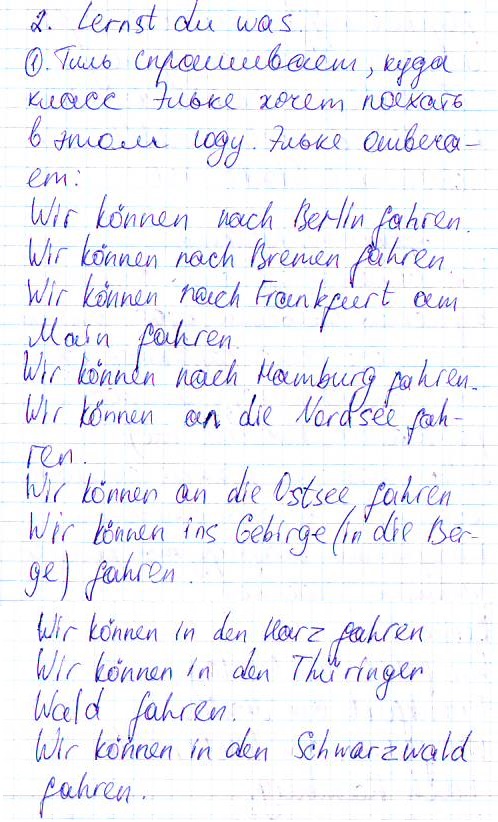 2. Lernst du was.
① Тиль спрашивает, куда
класс Эльке хочет поехать
в этом году. Эльке отвеча-
ет:
Wir können nach Berlin fahren.
Wir können nach Bremen fahren.
Wir können nach Frankfurt am
Main fahren.
Wir können nach Hamburg fahren.
Wir können an die Nordsee fah-
ren.
Wir können an die Ostsee fahren
Wir können ins Gebirge (in die Ber-
ge) fahren.
Wir können in den Harz fahren
Wir können in den Thüringer
Wald fahren.
Wir können in den Schwarzwald
fahren.